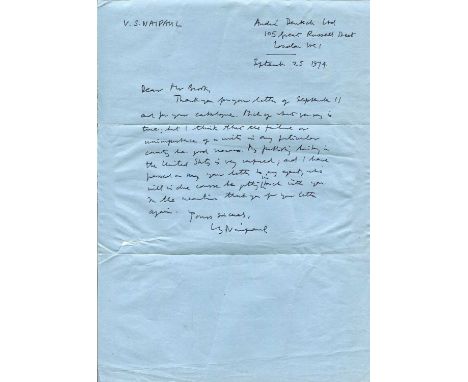 V. S. NAIPAUL
André Deutsch Ltd
105 Great Russell Street
London WC1
September 25 1974
Dear Mr
Thank you for your letter of September 11
and for your catalogue. Much of what you say is
true; but I think that the failure or
unimportance of a writer in any particular
country has good reasons. My publishing history in
the United States is very confused; and I have
passed on my your letter to my agent, who
will in due course be getting in touch with you
In the meantime thank you for your letter
again.
Yours sincerely,
VS Naipaul